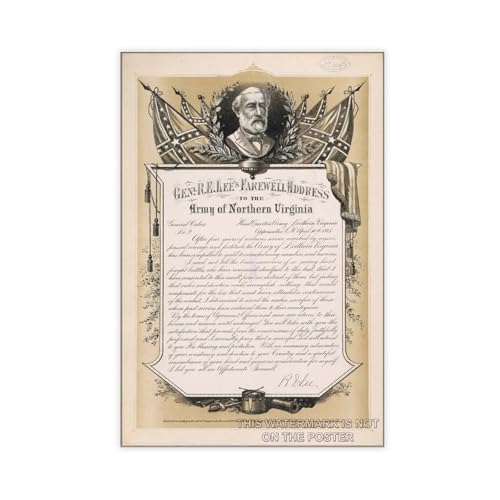 GENL. R.E. LEE'S FAREWELL ADDRESS
TO THE
Army of Northern Virginia
General Orders Head Quarters Army Northern Virginia
No. 9 Appomattox C.H. April 10th 1865
After four years of arduous service marked by
courage and fortitude the Army of Northern Virginia
has been compelled to yield to overwhelming numbers and
I need not tell the survivors of so many hard
fought battles who have remained steadfast to the last that I
have consented to this result from no distrust of them but
that valor and devotion could accomplish nothing that could
compensate for the loss that must have attended the continuance
of the contest, I determined to avoid the useless sacrifice of those
whose past services have endeared them to their countrymen
By the terms of Agreement Officers and men can return to their
homes and remain until exchanged. You will take with you the
satisfaction that proceeds from the consciousness of duty faithfully
performed and I earnestly pray that a merciful God will extend
to you His blessing and protection. With an admiration
of your constancy and devotion to your Country and a grateful
remembrance of your kind and generous consideration for myself
I bid you all an Affectionate Farewell
R E Lee
THIS WATERMARK IS NOT
ON THE POSTER